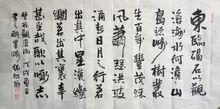 東臨碣石以觀
滄海水何澹澹山
島竦峙樹木叢
生百草豐茂秋
風蕭瑟洪波
湧起日月之行若
出其中星漢燦
爛若出其裏幸
甚至哉歌以詠志